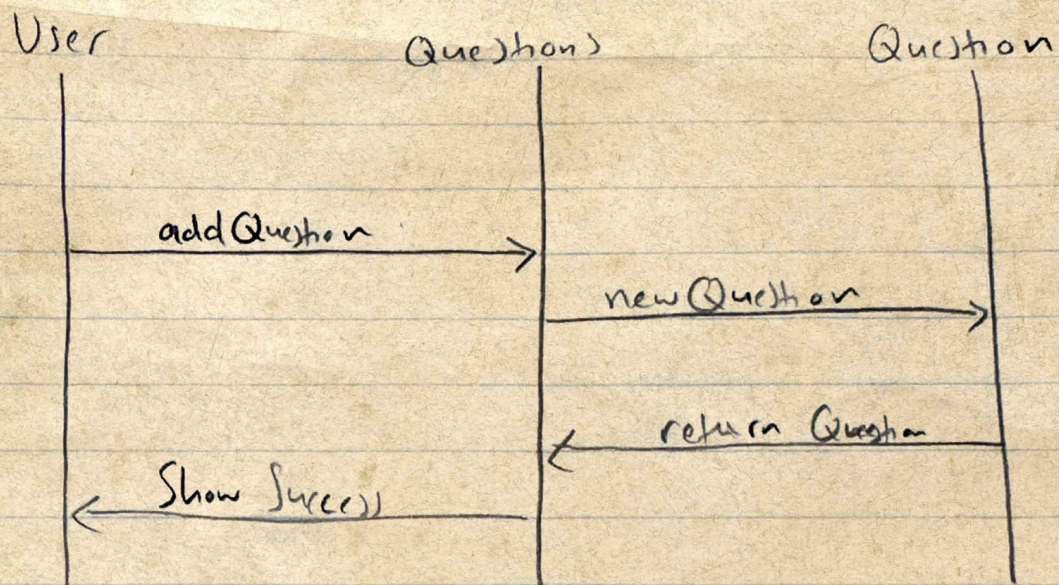 User
Questions
Question
addQuestion
newQuestion
return Question
Show Success